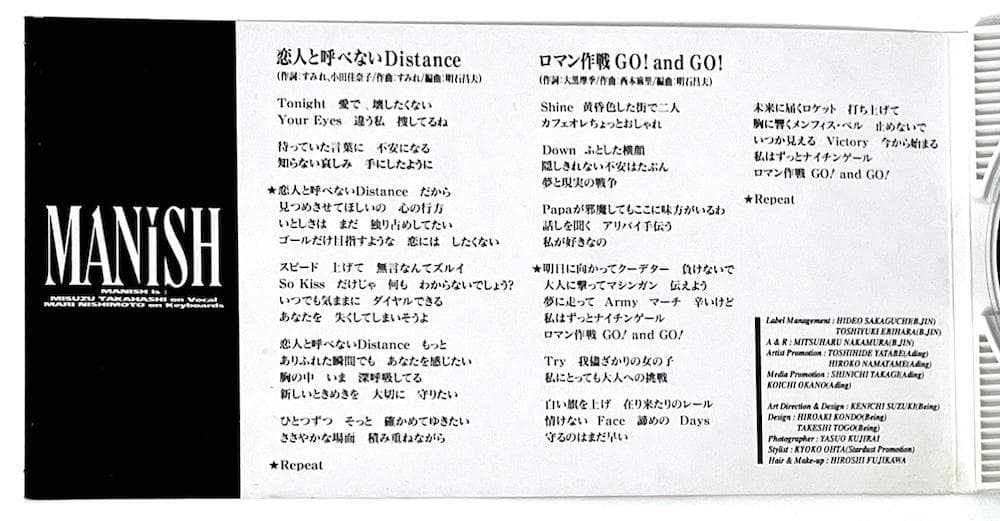 MANiSH
MANISH is :
MISUZU TAKAHASHI on Vocal
MARI NISHIMOTO on Keyboards
恋人と呼べないDistance
(作詞:すみれ、小田佳奈子/作曲:すみれ/編曲:明石昌夫)
Tonight 愛で 壊したくない
Your Eyes 違う私 捜してるね
待っていた言葉に 不安になる
知らない哀しみ 手にしたように
★恋人と呼べないDistance だから
見つめさせてほしいの 心の行方
いとしさは まだ 独り占めしてたい
ゴールだけ目指すような 恋には したくない
スピード 上げて 無言なんてズルイ
So Kiss だけじゃ 何も わからないでしょう?
いつでも気ままに ダイヤルできる
あなたを 失くしてしまいそうよ
恋人と呼べないDistance もっと
ありふれた瞬間でも あなたを感じたい
胸の中 いま 深呼吸してる
新しいときめきを 大切に 守りたい
ひとつずつ そっと 確かめてゆきたい
ささやかな場面 積み重ねながら
★Repeat
ロマン作戦 GO! and GO!
(作詞:大黒摩季/作曲:西本麻里/編曲:明石昌夫)
Shine 黄昏色した街で二人
カフェオレちょっとおしゃれ
Down ふとした横顔
隠しきれない不安はたぶん
夢と現実の戦争
Papaが邪魔してもここに味方がいるわ
話しを聞く アリバイ手伝う
私が好きなの
★明日に向かってクーデター 負けないで
大人に撃ってマシンガン 伝えよう
夢に走って Army マーチ 辛いけど
私はずっとナイチンゲール
ロマン作戦 GO! and GO!
Try 我儘ざかりの女の子
私にとっても大人への挑戦
白い旗を上げ 在り来たりのレール
情けない Face 諦めの Days
守るのはまだ早い
未来に届くロケット 打ち上げて
胸に響くメンフィス・ベル 止めないで
いつか見える Victory 今から始まる
私はずっとナイチンゲール
ロマン作戦 GO! and GO!
★Repeat
Label Management : HIDEO SAKAGUCHI(B.JIN)
TOSHIYUKI EBIHARA(B.JIN)
A & R : MITSUHARU NAKAMURA(B.JIN)
Artist Promotion : TOSHIHIDE YATABE(Ading)
HIROKO NAMATAME(Ading)
Media Promotion : SHINICHI TAKAGI(Ading)
KOICHI OKANO(Ading)
Art Direction & Design : KENICHI SUZUKI(Being)
Design : HIROAKI KONDO(Being)
TAKESHI TOGO(Being)
Photographer : YASUO KUJIRAI
Stylist : KYOKO OHTA(Stardust Promotion)
Hair & Make-up : HIROSHI FUJIKAWA